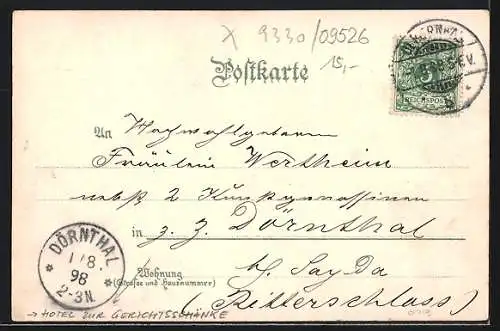 X 9330/09526
15,-
Postkarte
REICHSPOST
An Hochwohlgeboren
Fräulein Wertheim
nebst 2
in z. Z. Dörnthal
DÖRNTHAL
1/8.
98
2-3N.
Wohnung
(Straße und Hausnummer)
b/ Sayda
(Ritterschloss)
→ HOTEL ZUR GERICHTSSCHÄNKE